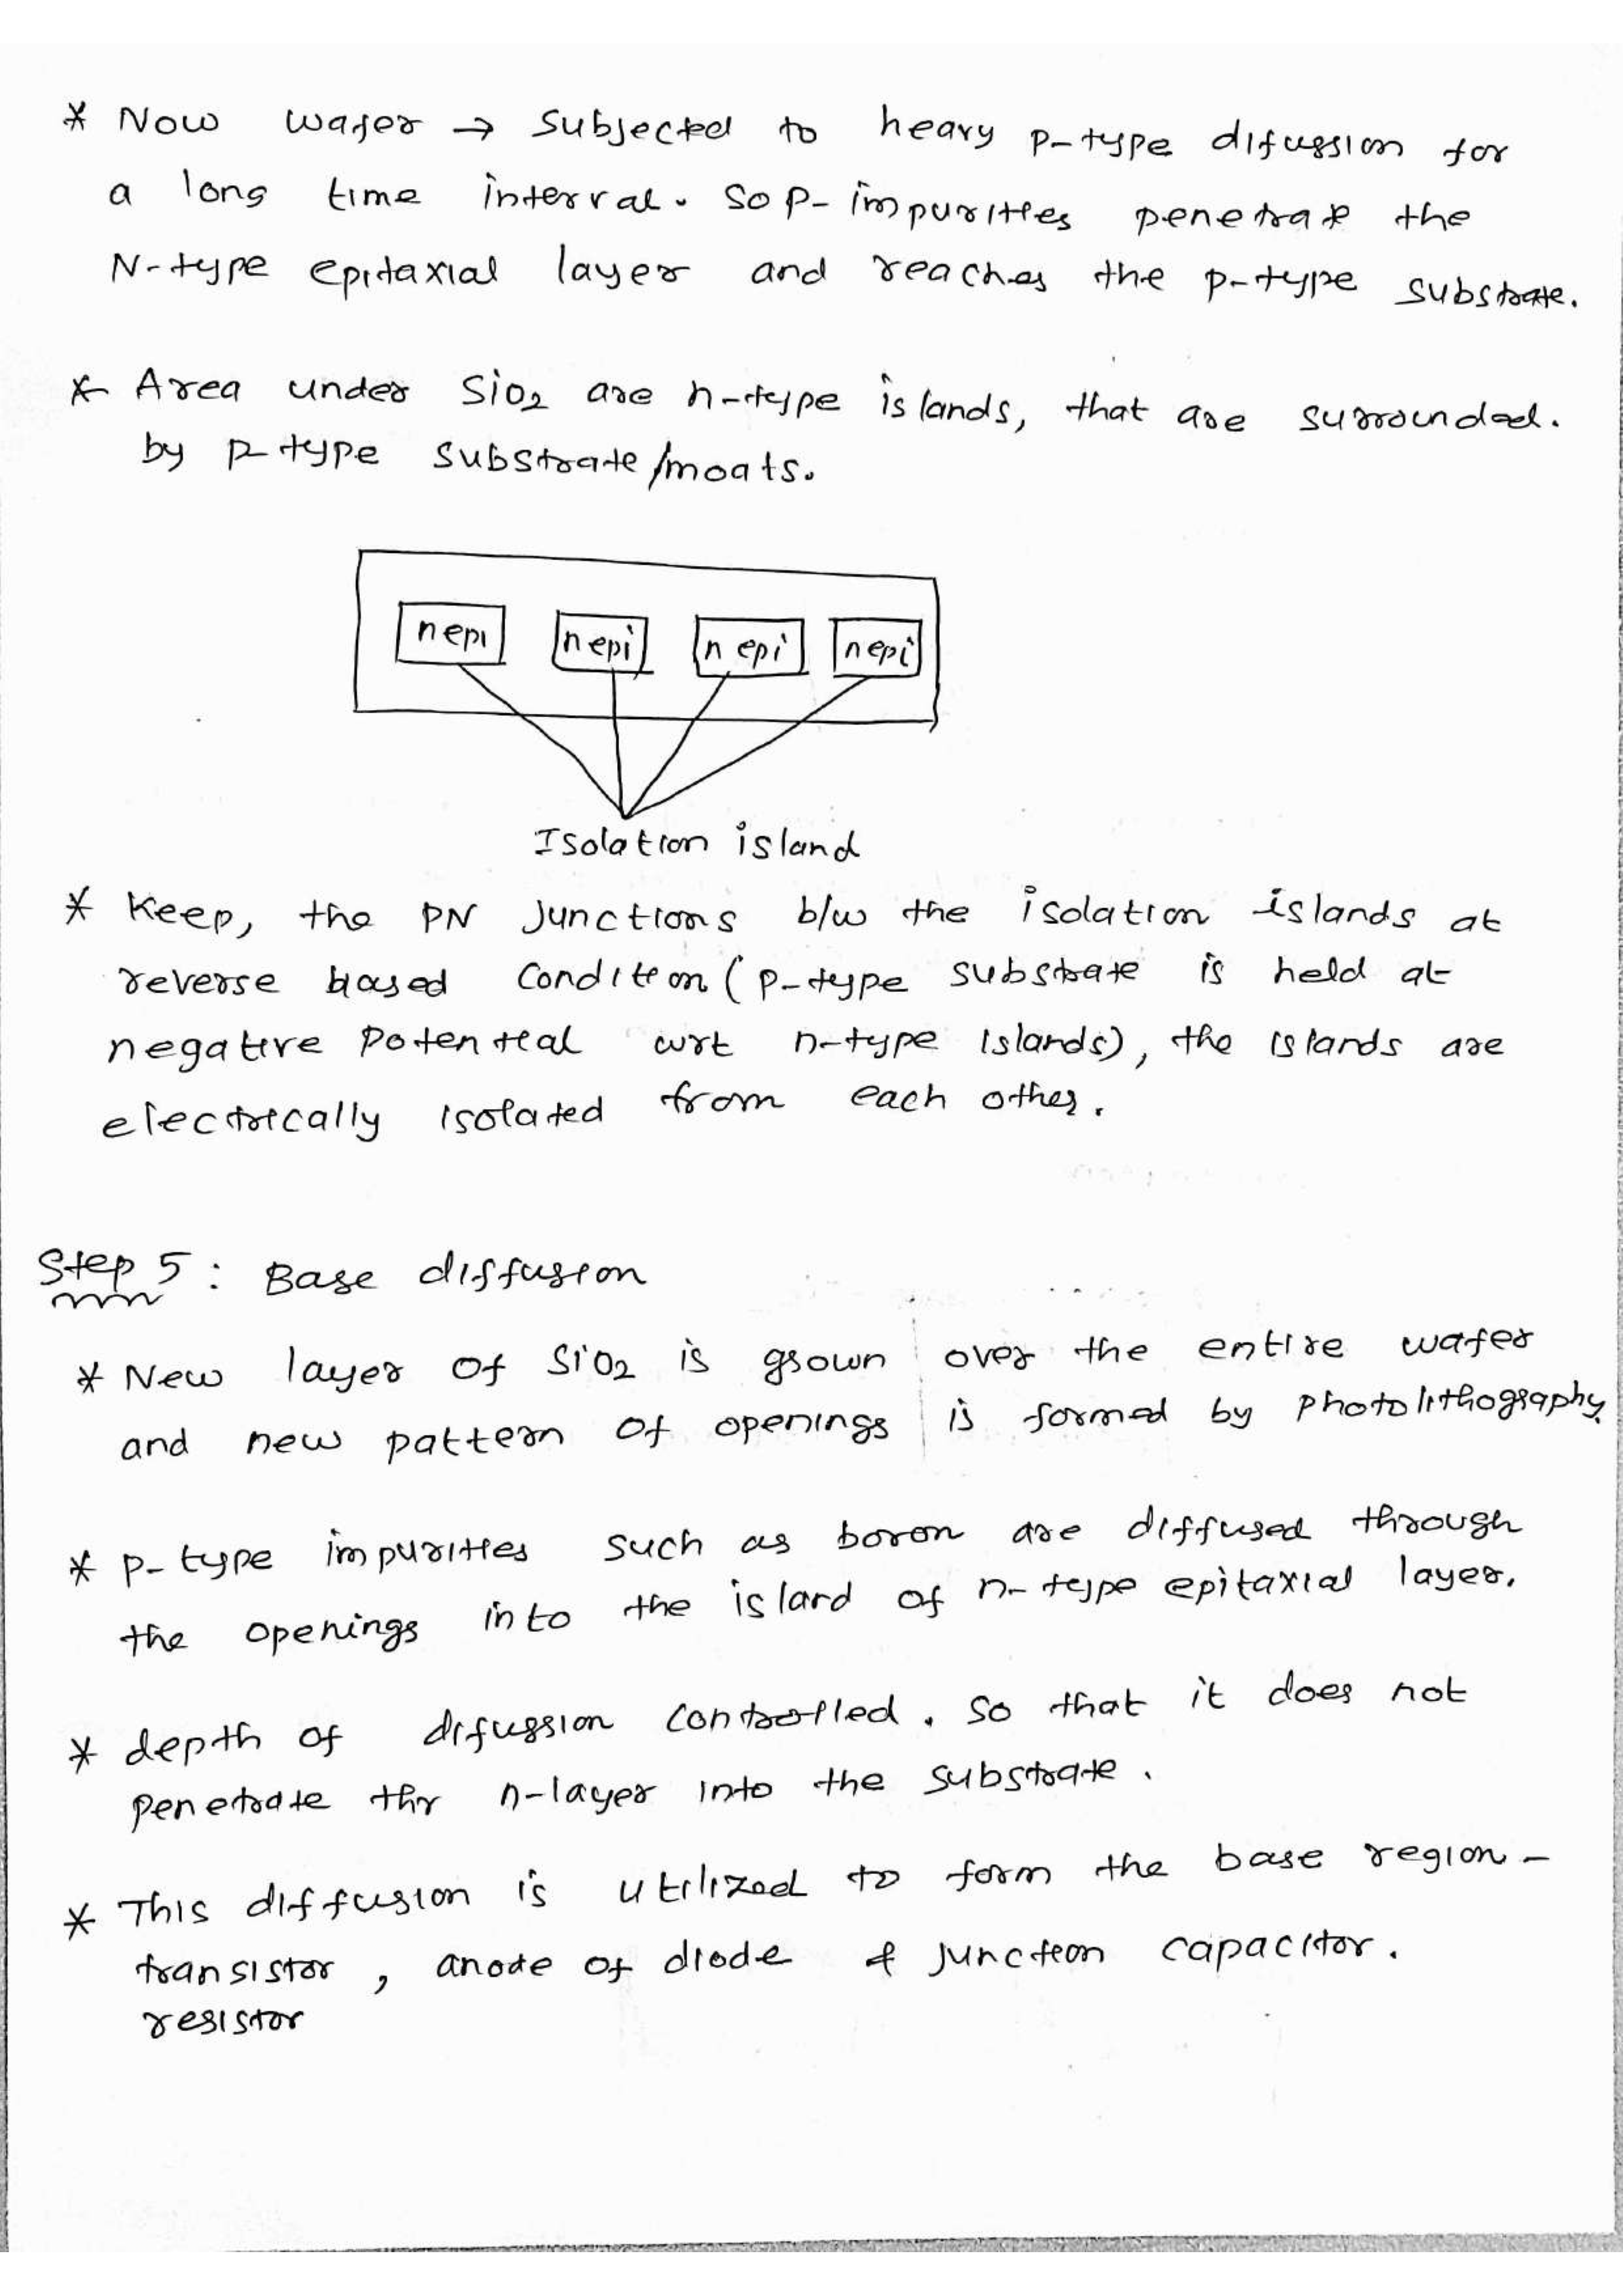 * Now wafer → subjected to heavy p-type difussion for
a long time interval. So p-impurities penetrate the
N-type epitaxial layer and reaches the p-type substrate.
* Area under SiO2 are n-type islands, that are surrounded.
by p-type substrate/moats.
n epi n epi n epi n epi
Isolation island
* Keep, the PN junctions b/w the isolation islands at
reverse biased condition (p-type substrate is held at
negative potential wrt n-type islands), the islands are
electrically isolated from each other.
Step 5 : Base diffusion
* New layer of SiO2 is grown over the entire wafer
and new pattern of openings is formed by photolithography.
* p-type impurities such as boron are diffused through
the openings into the island of n-type epitaxial layer.
* depth of difussion controlled. so that it does not
penetrate thr n-layer into the substrate.
* This diffusion is utilized to form the base region -
transistor, anode of diode & junction capacitor.
resistor